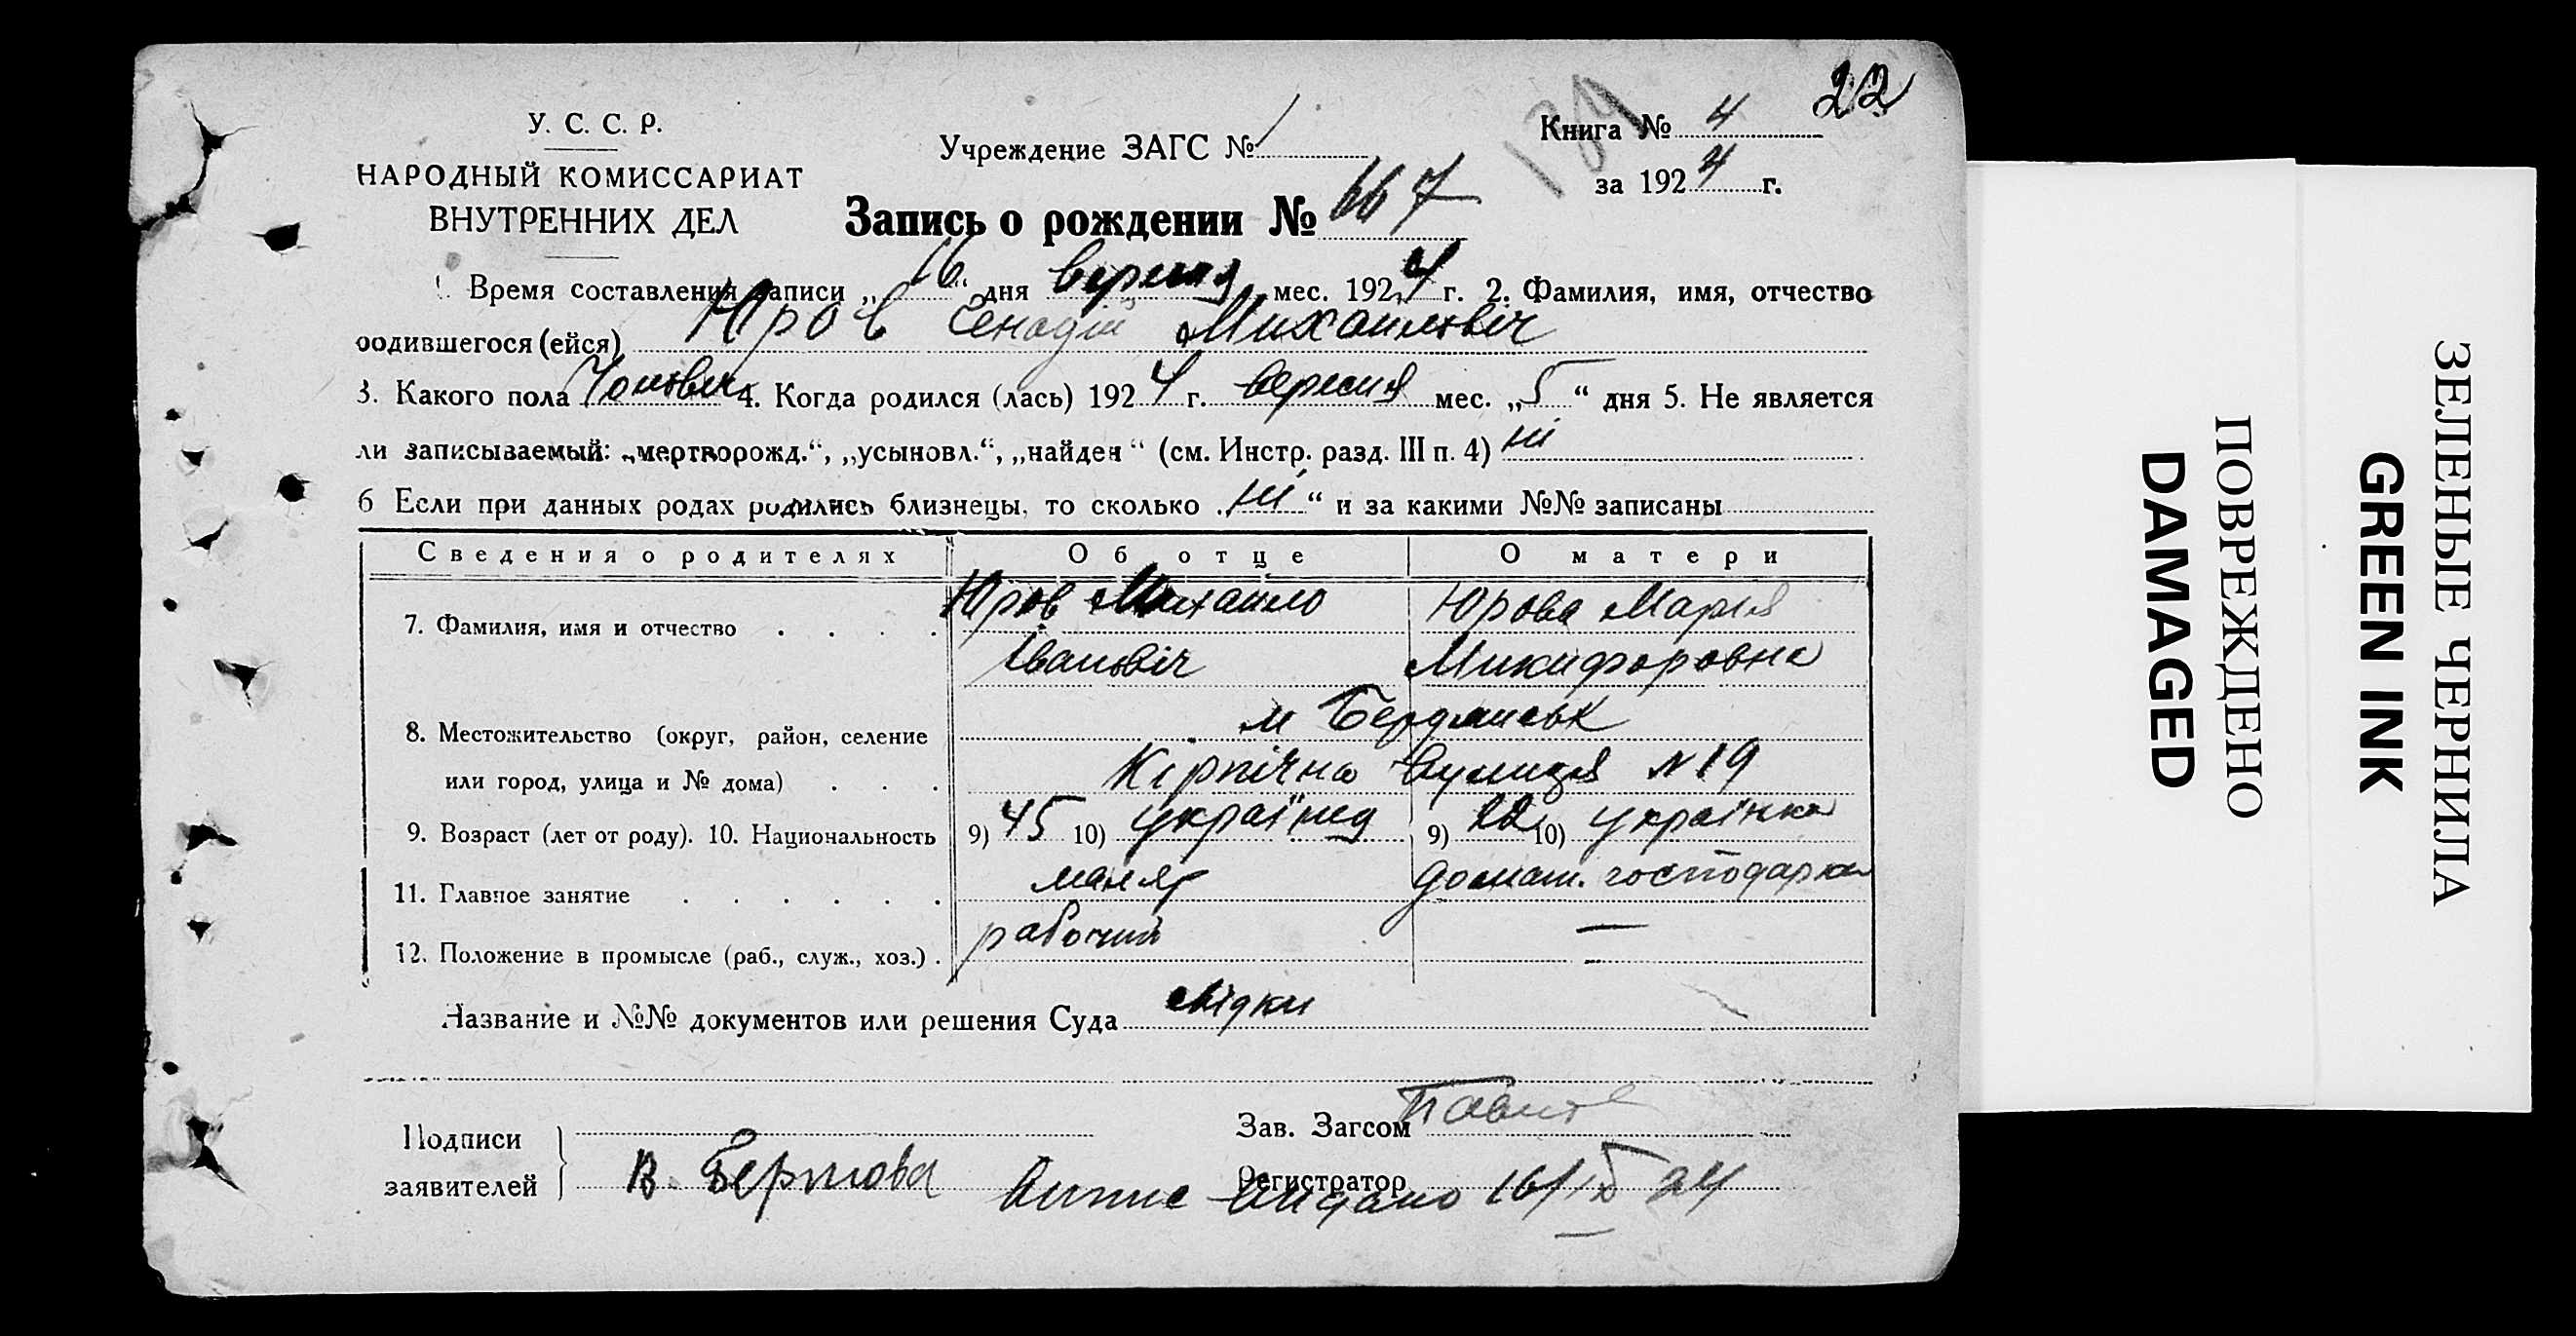 22
139
У. С. С. Р.
НАРОДНЫЙ КОМИССАРИАТ
ВНУТРЕННИХ ДЕЛ
Учреждение ЗАГС № 1
Книга № 4
за 1924 г.
Запись о рождении № 667
1. Время составления записи „16“ дня вересня мес. 1924 г. 2. Фамилия, имя, отчество
родившегося (ейся) Юров Генадій Михаиловіч
3. Какого пола Чоловіч 4. Когда родился (лась) 1924 г. вересня мес. „5“ дня 5. Не является
ли записываемый: „мертворожд.“, „усыновл.“, „найден“ (см. Инстр. разд. III п. 4) ні
6 Если при данных родах родились близнецы, то сколько „ні“ и за какими №№ записаны
Сведения о родителях Об отце О матери
7. Фамилия, имя и отчество Юров Михаило Юрова Марія
Івановіч Микифоровна
8. Местожительство (округ, район, селение м Бердянськ
или город, улица и № дома) Кірпічна вулиця N 19
9. Возраст (лет от роду). 10. Национальность 9) 45 10) українец 9) 22 10) українка
11. Главное занятие маляр домаш. господарка
12. Положение в промысле (раб., служ., хоз.) рабочий —
Название и №№ документов или решения Суда
Подписи
заявителей
В.
Зав. Загсом
Регистратор
Випис видано 16/IX 24
ПОВРЕЖДЕНО
DAMAGED
ЗЕЛЕНЫЕ ЧЕРНИЛА
GREEN INK